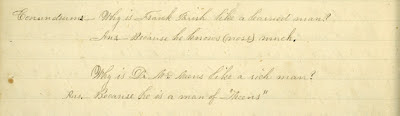 Conundrums - Why is Frank Frink like a learned man?
Ans - Because he knows (nose) much.
Why is Dr. Mc Means like a rich man?
Ans. Because he is a man of "Means"